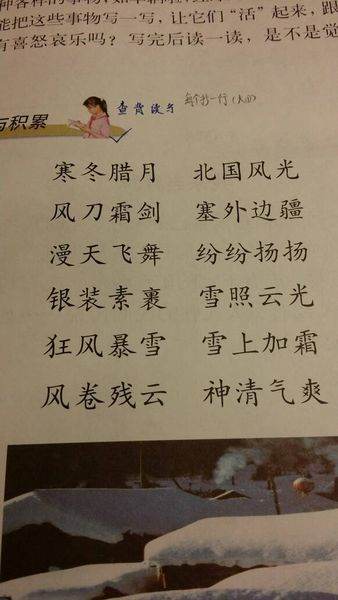 种各样的事物,
能把这些事物写一写,让它们“活”起来,跟
有喜怒哀乐吗?写完后读一读,是不是觉
与积累
寒冬腊月 北国风光
风刀霜剑 塞外边疆
漫天飞舞 纷纷扬扬
银装素裹 雪照云光
狂风暴雪 雪上加霜
风卷残云 神清气爽